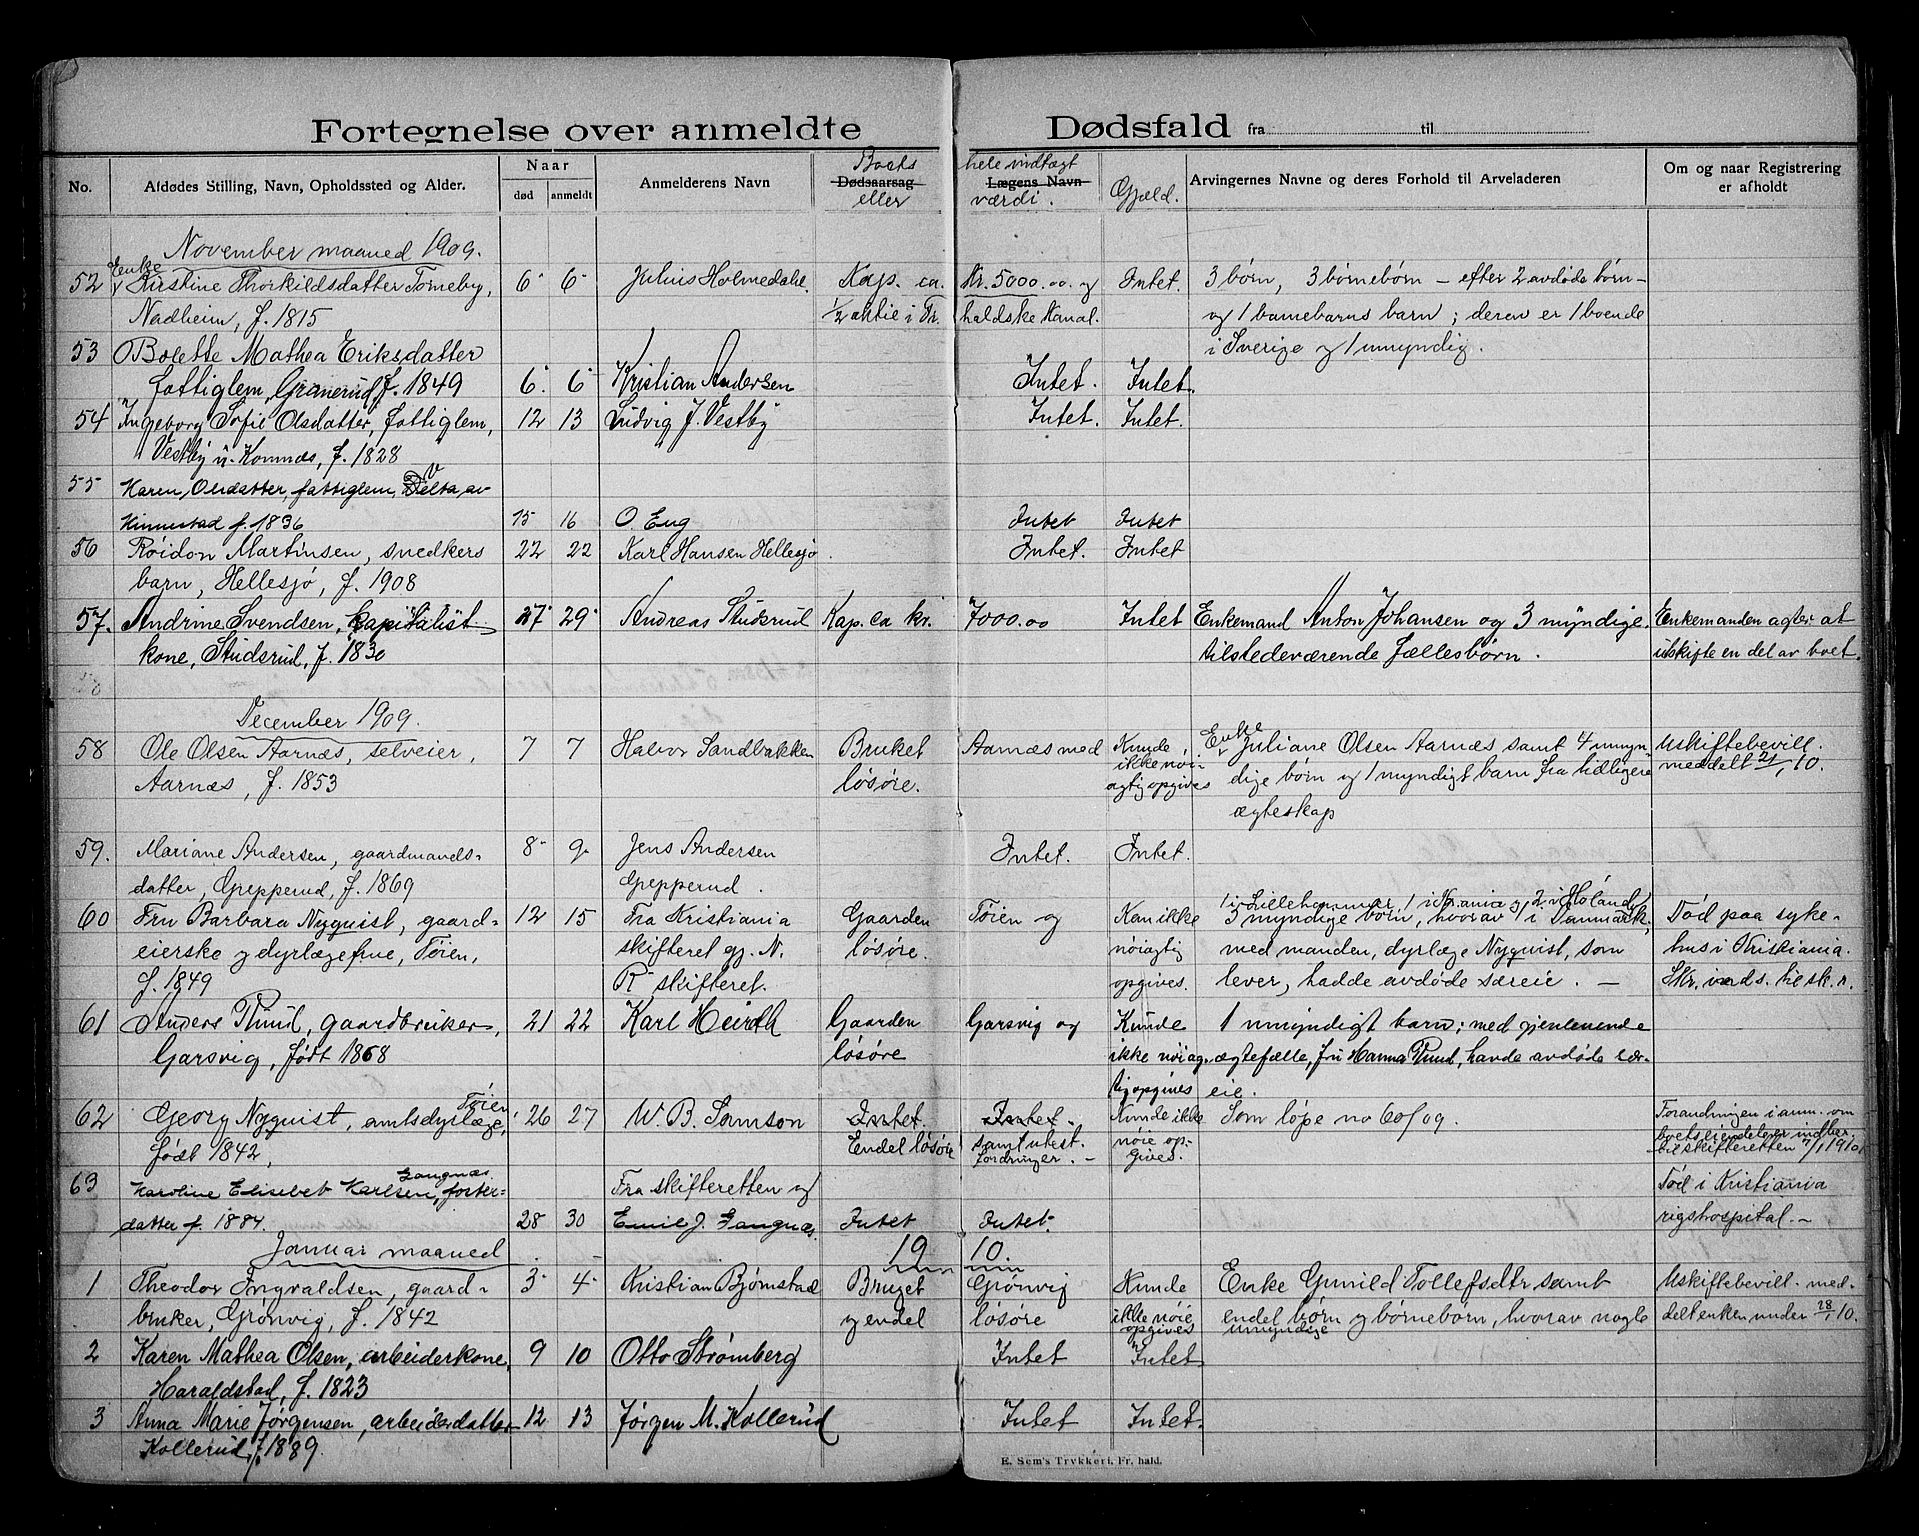 Fortegnelse over anmeldte Dødsfald fra til
No. Afdødes Stilling, Navn, Opholdssted og Alder. Naar død anmeldt Anmelderens Navn Boets Dødsaarsag eller hele indtægt Lægens Navn værdi. Gjæld. Arvingernes Navne og deres Forhold til Arveladeren Om og naar Registrering er afholdt
November maaned 1909.
Enke
52 Kirstine Thorkildsdatter Torneby, 6 6 Julius Holmedahl. Kap. ca. Kr. 5000.00 og Intet. 3 børn, 3 børnebørn – efter 2 avdøde børn –
Nadheim, f. 1815 1/2 aktie i Fr. haldske Kanal. og 1 barnebarns barn; deren er 1 boende
53 Bolette Mathea Eriksdatter i Sverige og 1 umyndig.
fattiglem, Granerud, f. 1849 6. 6 Kristian Andersen Intet. Intet.
54 Ingeborg Sofie Olsdatter, fattiglem, 12 13 Ludvig J. Vestby Intet. Intet.
Vestby u. Komnæs, f. 1828
55 Karen Olsdatter, fattiglem, Velta, av
Kinnestad f. 1836 15 16 O. Eng Intet Intet
56 Røidon Martinsen, snedkers 22 22 Karl Hansen Hellesjø. Intet. Intet
barn, Hellesjø, f. 1908
57. Andrine Svendsen, kapitalist 27 29 Andreas Studsrud Kap. ca kr. 7000.00 Intet Enkemand Anton Johansen og 3 myndige Enkemanden agter at
kone, Studsrud, f. 1830 tilstedeværende fællesbørn. utskifte en del av boet.
December 1909.
58 Ole Olsen Aarnæs, selveier, 7 7 Halvor Sandbakken Bruket Aarnæs med Kunde, Enke Juliane Olsen Aarnæs samt 4 umyn Uskiftebevill.
Aarnæs, f. 1853 løsøre. ikke nøi- agtig opgives dige børn og 1 myndigt barn fra tidligere meddelt 21/1 10.
ægteskap
59. Mariane Andersen, gaardmands- 8 9 Jens Andersen Intet. Intet.
datter, Grepperud, f. 1869 Grepperud.
1 i Lillehammer, 1 i Krania og 2 i Høland
60 Fru Barbara Nyquist, gaard- 12 15 Fra Kristiania Gaarden Tøien og Kan ikke 5 myndige børn, hvorav 1 i Danmark, Død paa syke-
eierske og dyrlægefrue, Tøien, skifteret gj. N. løsøre. nøiagtig med manden, dyrlæge Nyquist, som hus i Kristiania.
f. 1849 R skifteret. opgives. lever, hadde avdøde særeie. – Skr. værds. til sk. r.
61 Anders Ruud, gaardbruker, 21 22 Karl Heirth Gaarden Garsvig og Kunde 1 umyndigt barn; med gjenlevende
Garsvig, født 1868 løsøre ikke nøiag- ægtefælle, fru Hanna Ruud, havde avdøde sær-
tig opgives eie.
62 Georg Nyquist, amtsdyrlæge, Tøien, 26 27 W. B. Samson Intet. Intet. Kunde ikke Som løpe no 60/09. Forandringen i anm. om
født 1842, Endel løsøre samt utest. fordringer. – nøie op- gives. boets eiendeler indber. til skifteretten 7/1 1910.
63 Karoline Elisebet Karlsen, Langnæs forker- Fra skifteretten og Død i Kristiania
datter f. 1884. 28 30 Emil J. Langnæs. Intet Intet. rigshospital. –
Januar maaned 1910.
1 Theodor Ingvaldsen, gaard- 3 4 Kristian Bjørnstad Bruget Grønvig Kunde Enke Gunild Tollefsdtr samt Uskiftebevill. med-
bruker, Grønvig, f. 1842 og endel løsøre ikke nøie opgives endel børn og børnebørn, hvorav nogle umyndige delt enken under 28/1 10.
2 Karen Mathea Olsen, arbeiderkone, 9 10 Otto Strømberg Intet Intet
Haraldstad, f. 1823
3 Anna Marie Jørgensen, arbeiderdatter 12 13 Jørgen M. Kollerud Intet Intet.
Kollerud, f. 1889.
E. Sem's Trykkeri, Fr. hald.